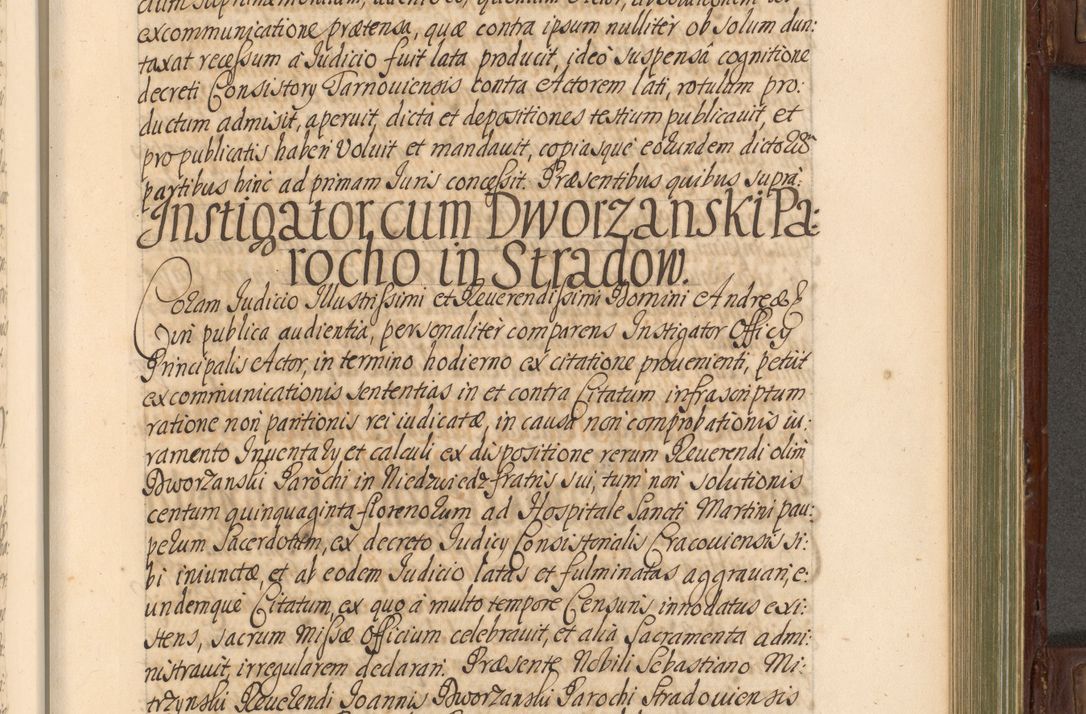 excommunicatione prætensa, quæ contra ipsum nulliter ob solum dun:
taxat recessum à Iudicio fuit lata producit, ideò suspensâ cognitione
decreti Consistory Tarnoviensis contra Actorem lati, rotulum pro:
ductum admisit, aperuit, dicta et depositiones testium publicavit, et
pro publicatis haberi voluit et mandavit, copiasque eorundem dictorum
partibus hinc ad primam Iuris concessit. Præsentibus quibus supra.
Instigator cum Dworzanski Pa:
rocho in Stradow.
Coram Iudicio Illustrissimi et Reverendissimi Domini Andreæ
in publica audientia, personaliter comparens Instigator Officy
Principalis Actor, in termino hodierno ex citatione provenienti, petiit
excommunicationis sententias in et contra Citatum infrascriptum
ratione non paritionis rei iudicatæ, in causa non comprobationis iu:
ramento Inventary et calculi ex dispositione rerum Reverendi olim
Dworzanski Parochi in Niedzwiedz fratris sui, tum non solutionis
centum quinquaginta florenorum ad Hospitale Sancti Martini pau:
perum Sacerdotum, ex decreto Iudicy Consistorialis Cracoviensis si:
bi iniunctæ, et ab eodem Iudicio latas et fulminatas aggravari, e:
undemque Citatum, ex quo à multo tempore Censuris innodatus exi:
stens, sacrum Missæ Officium celebravit, et alia Sacramenta admi:
nistravit, irregularem declarari. Præsente Nobili Sebastiano Mi:
trzynski Reverendi Ioannis Dworzanski Parochi Stradoviensis